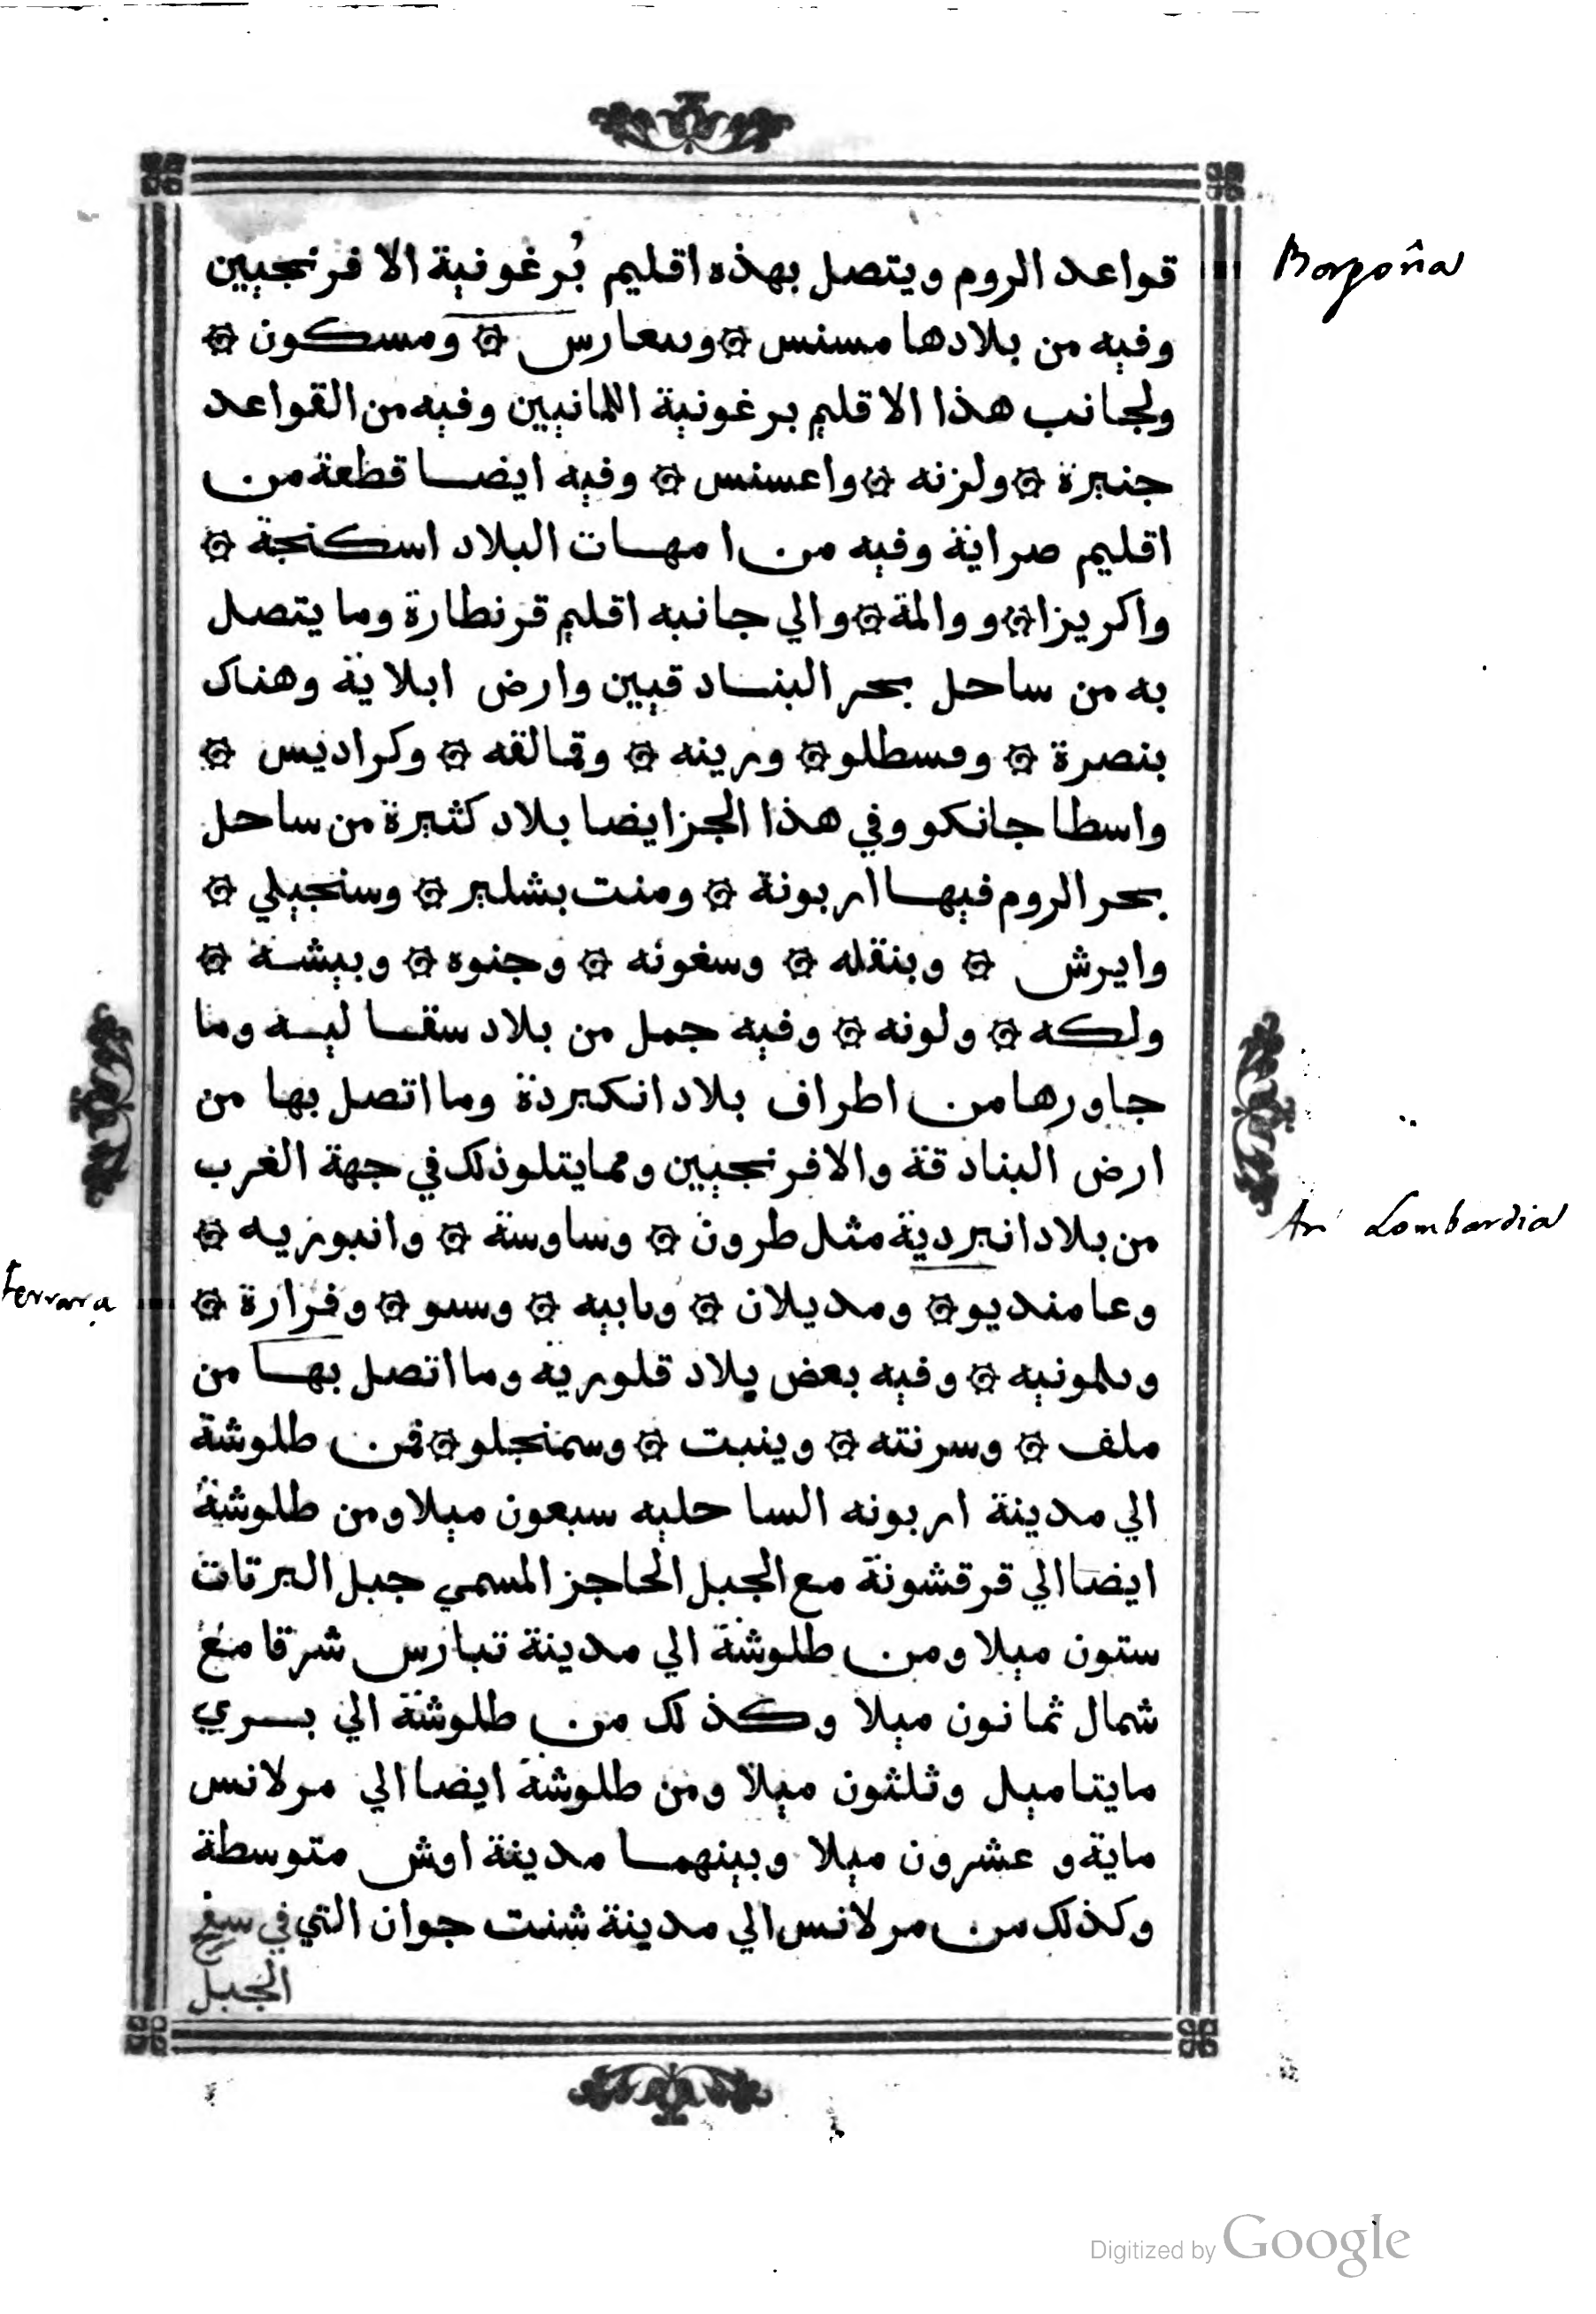 قواعد الروم ويتصل بهذه اقليم بُرغونية الافرنجيين
Borgoña
وفيه من بلادها مسنس ۞ وسعارس ۞ ومسكون ۞
ولجانب هذا الاقليم برغونية اللمانيين وفيه من القواعد
جنبرة ۞ ولزنه ۞ واعسنس ۞ وفيه ايضا قطعة من
اقليم صراية وفيه من امهات البلاد اسكنجة ۞
واكريزا ۞ ووالمة ۞ والي جانبه اقليم قرنطارة وما يتصل
به من ساحل بحر البنادقيين وارض ابلاية وهناك
بنصرة ۞ ومسطلو ۞ ورينه ۞ وقمالقه ۞ وكراديس ۞
واسطاجانكو وفي هذا الجز ايضا بلاد كثيرة من ساحل
بحر الروم فيها اربونة ۞ ومنت بشلير ۞ وسنجيلي ۞
وايرش ۞ وبنقله ۞ وسغونه ۞ وجنوه ۞ وبيشة ۞
ولكه ۞ ولونه ۞ وفيه جمل من بلاد سقسا ليه وما
جاورها من اطراف بلاد انكبردة وما اتصل بها من
ارض البنادقة والافرنجيين ومما يتلو ذلك في جهة الغرب
من بلاد انبردية مثل طرون ۞ وساوسة ۞ وانبوريه ۞
Lombardia
وعامنديو ۞ ومديلان ۞ وبابيه ۞ وسو ۞ وفرارة ۞
Ferrara
وىلمونيه ۞ وفيه بعض بلاد قلورية وما اتصل بها من
ملف ۞ وسرنته ۞ وينبت ۞ وسمنجلو ۞ فمن طلوشة
الي مدينة اربونه الساحليه سبعون ميلا ومن طلوشة
ايضا الي قرقشونة مع الجبل الحاجز المسمي جبل البرتات
ستون ميلا ومن طلوشة الي مدينة تبارس شرقا مع
شمال ثمانون ميلا وكذلك من طلوشة الي بسري
مايتا ميل وثلثون ميلا ومن طلوشة ايضا الي مرلانس
ماية وعشرون ميلا وبينهما مدينة اوش متوسطة
وكذلك من مرلانس الي مدينة شنت جوان التي في سفح
الجبل
Digitized by Google